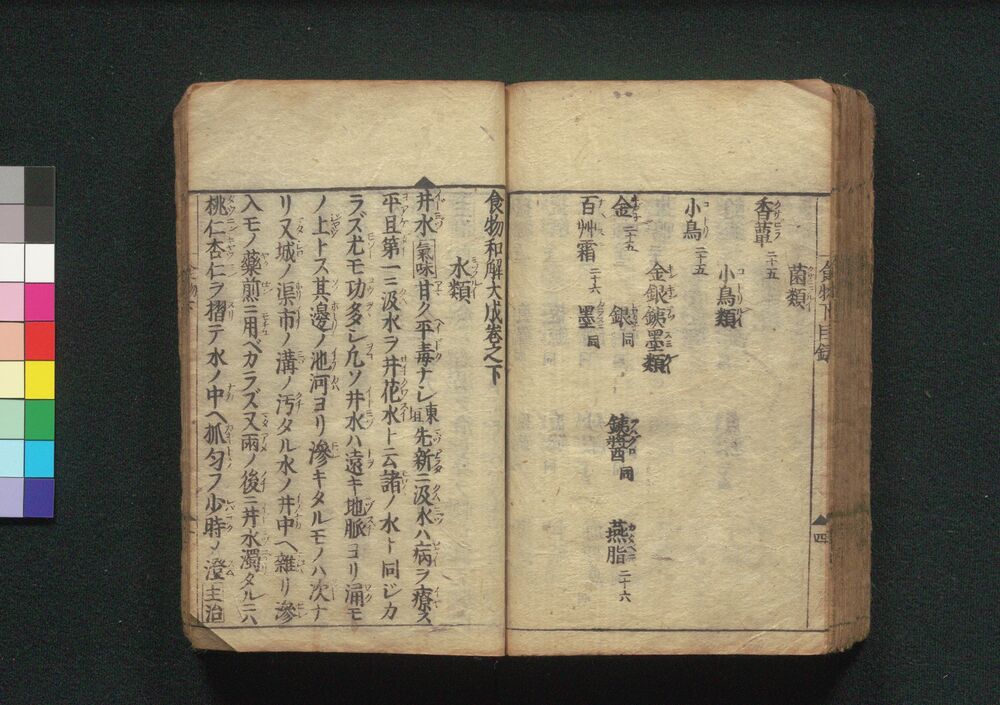 食物下目録
菌類
香蕈 二十五
小鳥類
小鳥 二十五
金銀鐵墨類
金 二十五 銀 同 鐵醬 同 燕脂 二十六
百艸霜 二十六 墨 同
四
食物和解大成卷之下
水類
井水 氣味 甘ク平毒ナシ 東垣 先新ニ汲水ハ病ヲ療ス
平旦第一ニ汲水ヲ井花水ト云諸ノ水ト同ジカ
ラズ尤モ功多シ凡ソ井水ハ遠キ地脈ヨリ涌モ
ノ上トス其邉ノ池河ヨリ滲キタルモノハ次ナ
リ又城ノ渠市ノ溝ノ汚タル水ノ井中ヘ雜リ滲
入モノ藥煎ニ用ベカラズ又雨ノ後ニ井水濁タルニハ
桃仁杏仁ヲ摺テ水ノ中ヘ抓匀フ少時ノ澄 主治